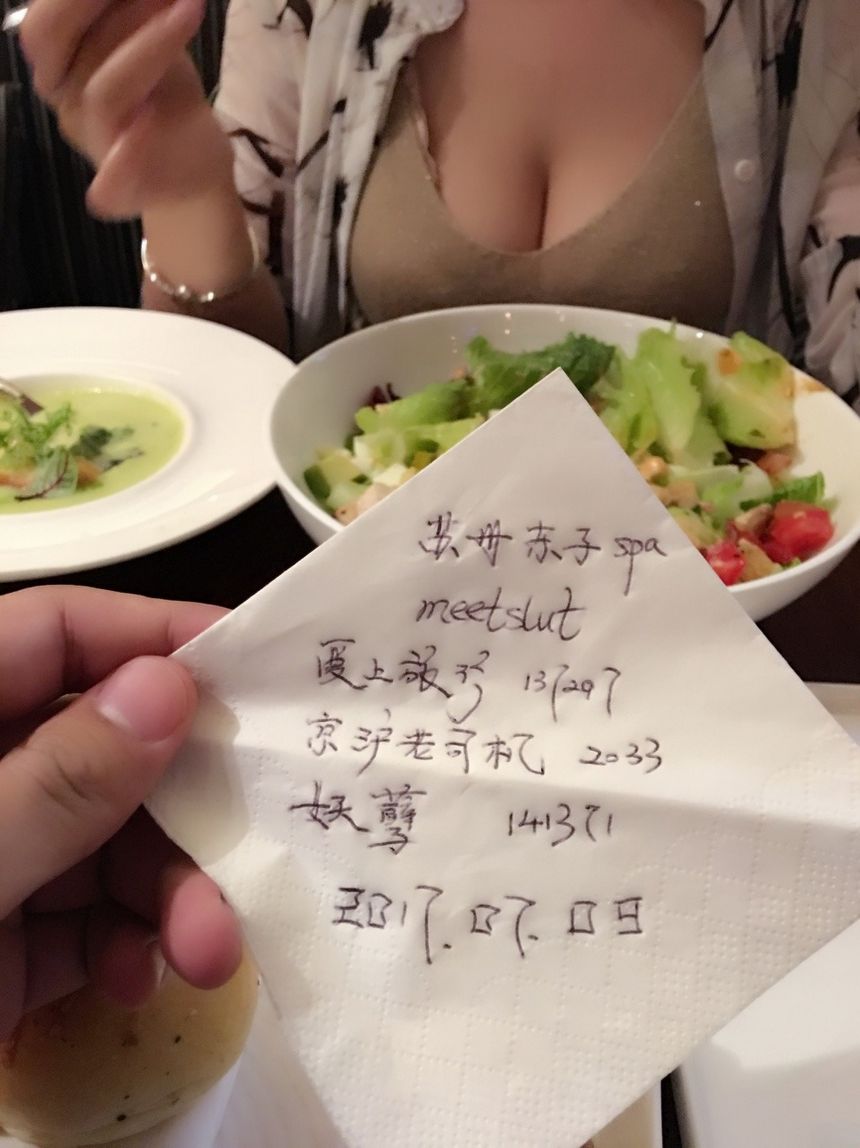 苏州东子spa
meetslut
爱上敲门 137297
京沪老司机 2033
妖孽 141371
2017.07.09